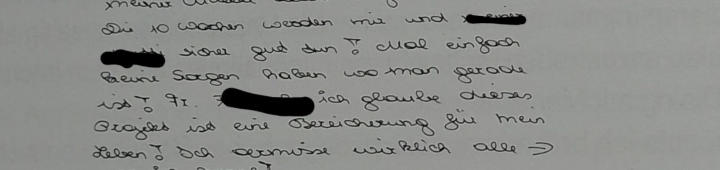 meiner
Die 10 Wochen werden mir und
sicher gut tun! Mal einfach
keine Sorgen haben wo man gerade
ist! Fr. ich glaube dieses
Projekt ist eine Bereicherung für mein
Leben! Ich vermisse wirklich alle →